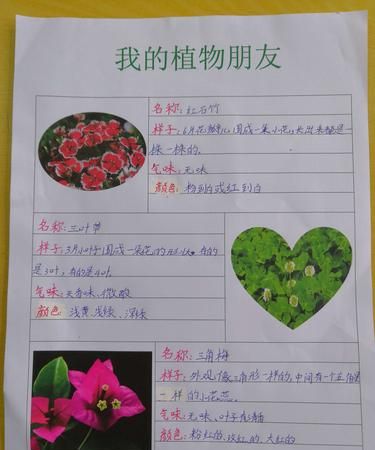 我的植物朋友
名称:红石竹
样子:6片花瓣儿围成一朵小花,长出来都是一
株一株的。
气味:无味
颜色:粉到白或红到白
名称:三叶草
样子:3片小叶子围成一朵花的形状。有的
是3叶,有的是4叶。
气味:无香味、微酸
颜色:浅黄、浅绿、深绿
名称:三角梅
样子:外观像三角形一样的,中间有一个五角星
一样的小花蕊。
气味:无味、叶子
颜色:粉红的、玫红的、大红的